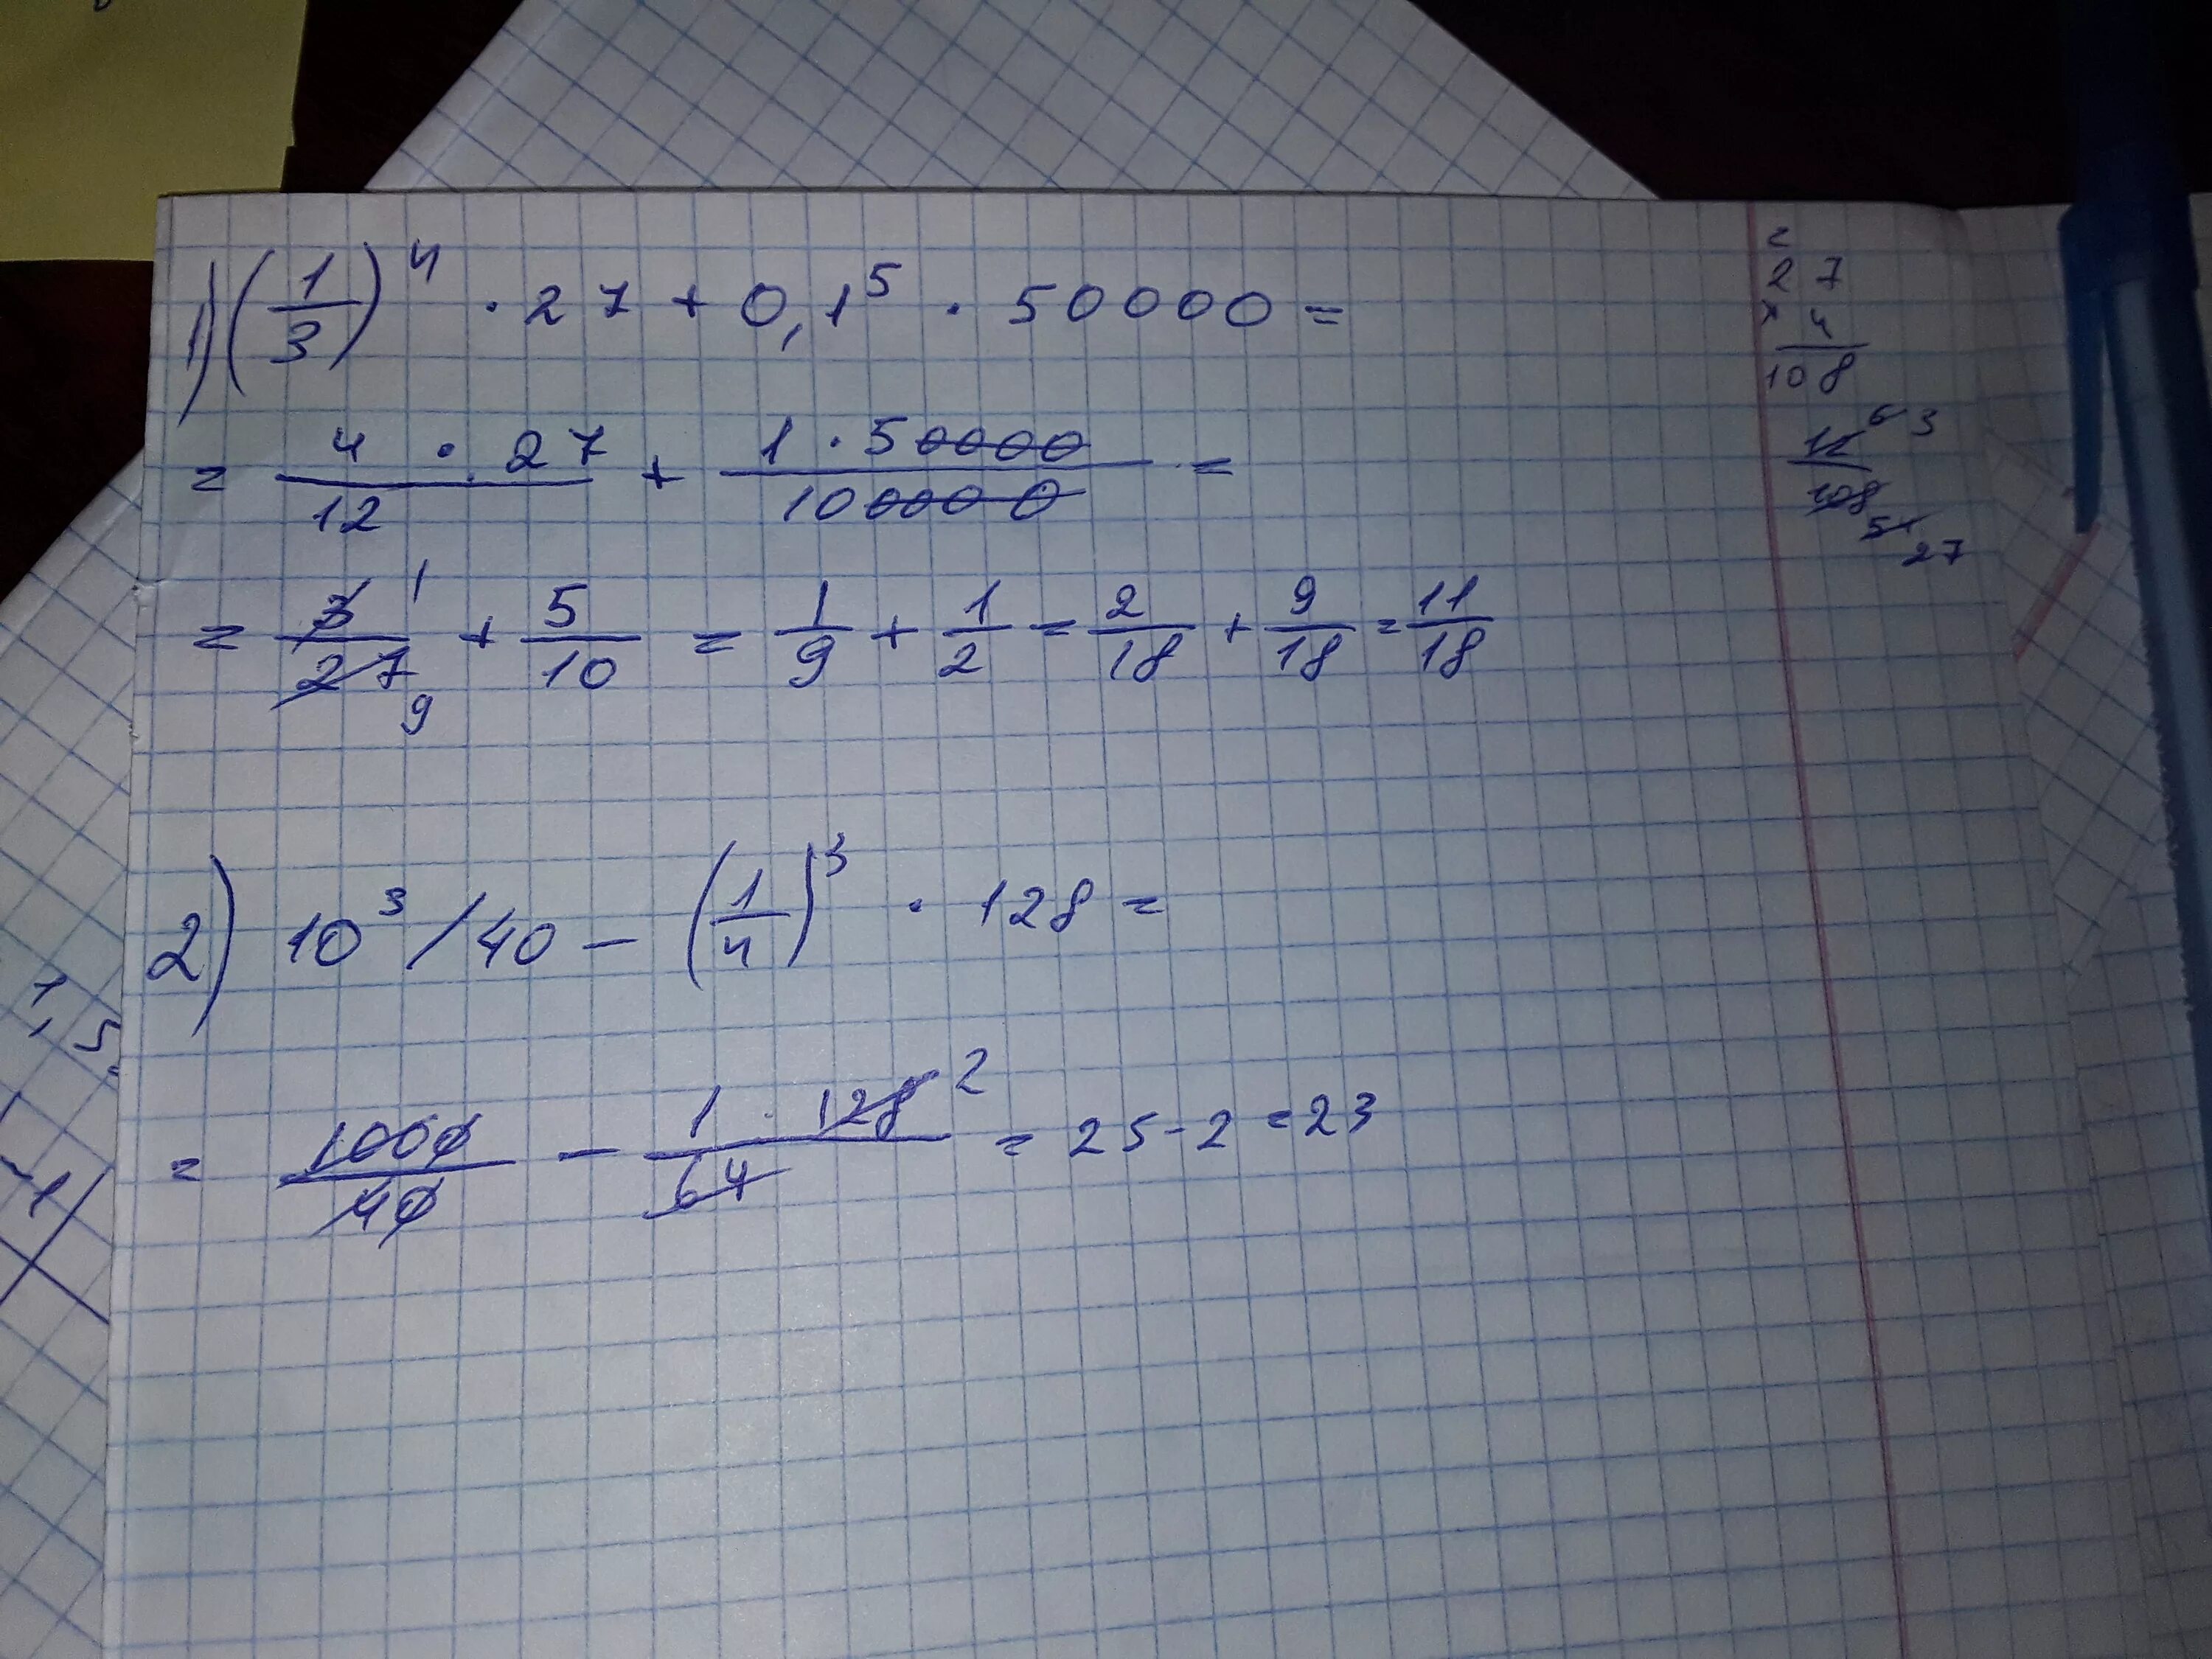 1) (1/3)⁴ · 27 + 0,1⁵ · 50000 =
= 4 · 27/12 + 1 · 50000/100000 =
= 3/27 1 9 + 5/10 = 1/9 + 1/2 = 2/18 + 9/18 = 11/18
2) 10³ / 40 - (1/4)³ · 128 =
= 1000/40 - 1 · 128/64 2 = 25 - 2 = 23
2
27
× 4
108
12 6 3
108 54 27
1,5
-1